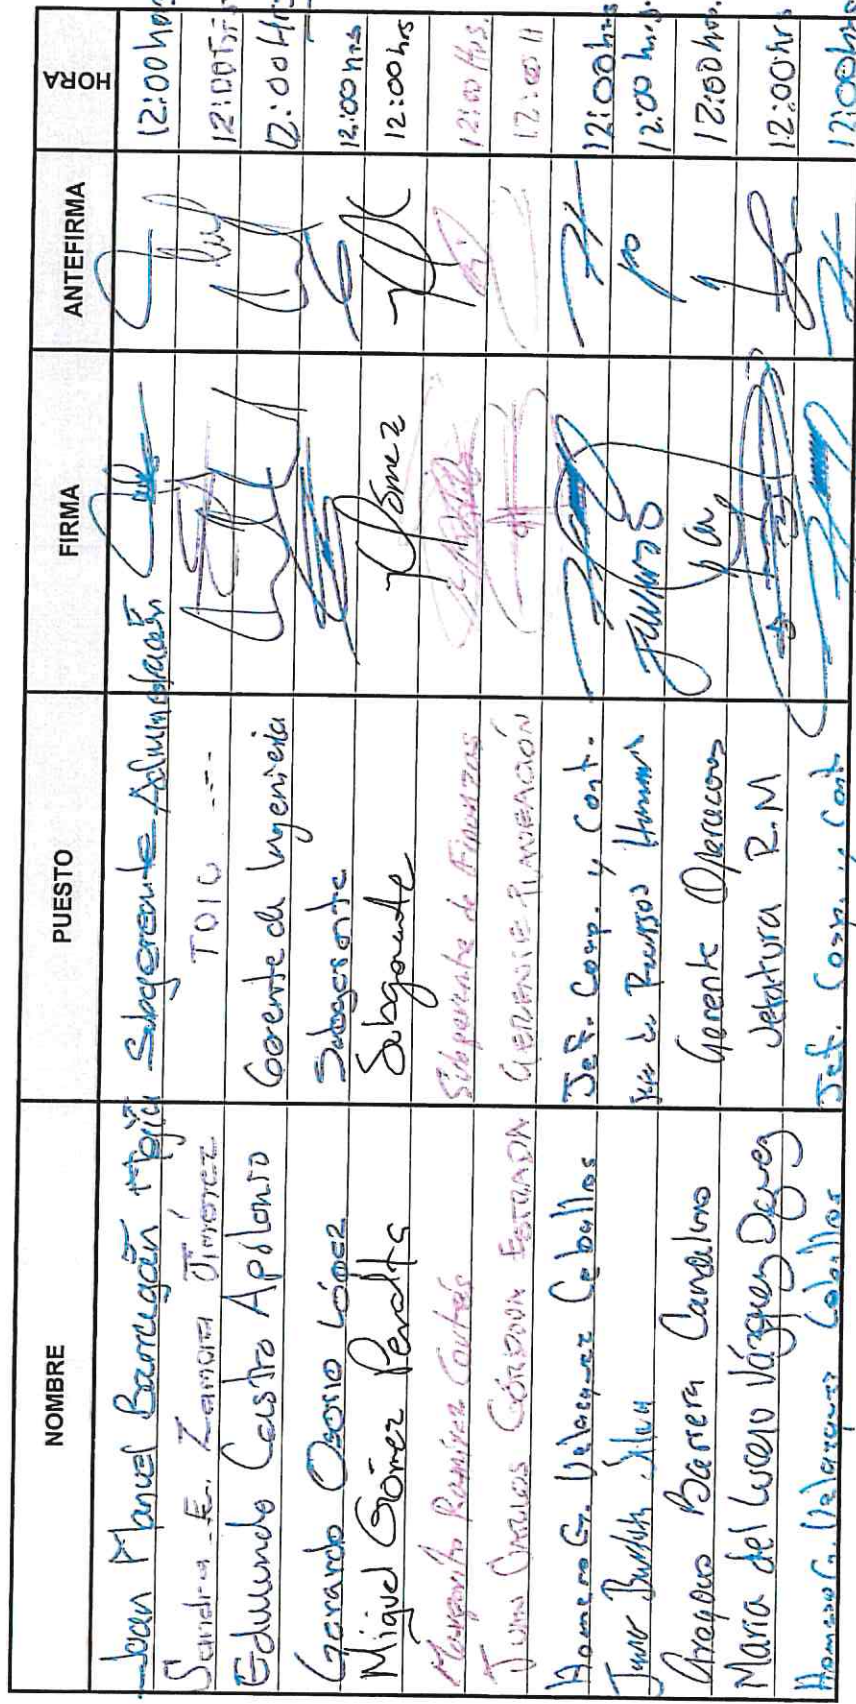 NOMBRE PUESTO FIRMA ANTEFIRMA HORA
Juan Manuel Barragán Mejía Subgerente Administración 12:00 hrs
Sandra E. Zamora Jiménez TOIC 12:00 hrs
Edmundo Castro Apolonio Gerente de Ingeniería 12:00 Hrs
Gerardo Osorio López Subgerente 12:00 hrs
Miguel Gómez Peralta Subgerente Gómez 12:00 hrs
Margarito Ramírez Cortés Subgerente de Finanzas 12:00 Hrs.
Juan Carlos Estrada GERENTE PLANEACIÓN 12:00 H
Homero G. Velazquez Ceballos Jef. Comp. y Cont. 12:00 hrs
Silva Jefe de Recursos Humanos 12:00 hrs.
Barrera Gerente Operaciones 12:00 hrs.
María del Lucero Vázquez Jefatura R.M 12:00 hrs
Homero G. Velazquez Ceballos Jef. Comp. y Cont. 12:00 hrs